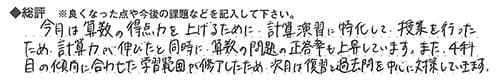 ◆総評 ※良くなった点や今後の課題などを記入して下さい。
今月は算数の得点力を上げるために、計算演習に特化して、授業を行った
ため、計算力が伸びたと同時に、算数の問題の正答率も上昇しています。また、4科
目の傾向に合わせた学習範囲が修了したため、次月は復習と過去問を中心に対策していきます。